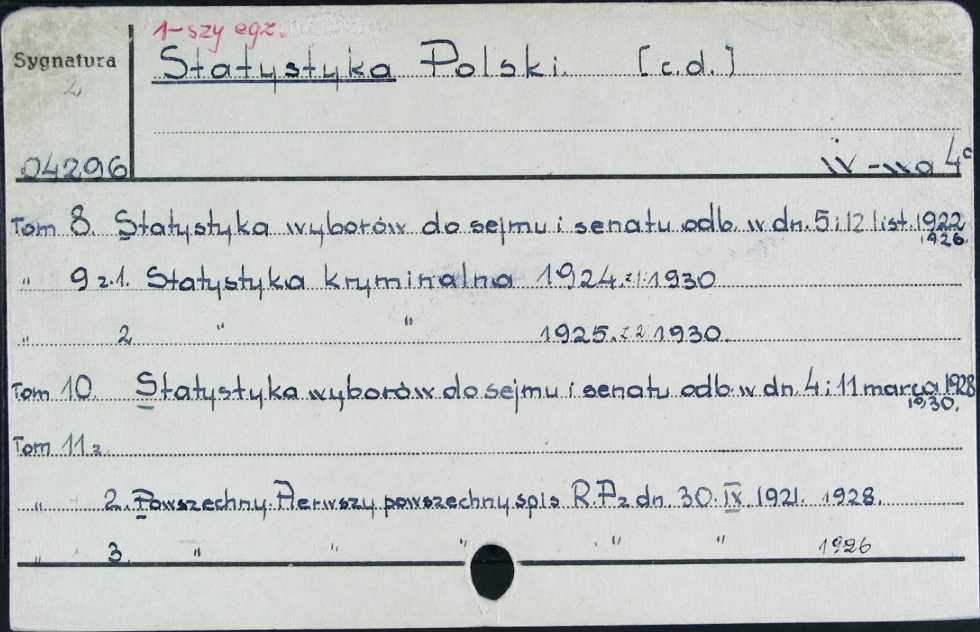 1-szy egz.
Sygnatura
2
Statystyka Polski. [c.d.]
04296
W-wa 4°
Tom 8. Statystyka wyborów do sejmu i senatu odb. w dn. 5 i 12 list. 1922
1926.
" 9 z.1. Statystyka kryminalna 1924. z.1. 1930
" 2 " " 1925. z 2 1930.
Tom 10. Statystyka wyborów do sejmu i senatu odb. w dn. 4 i 11 marca 1928
1930.
Tom 11 z.
" 2. Powszechny. Pierwszy powszechny spis R.P z dn. 30. IX. 1921. 1928.
" 3. " " " " " 1926